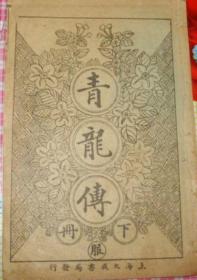 青龍傳
下冊
上海大成書局發行